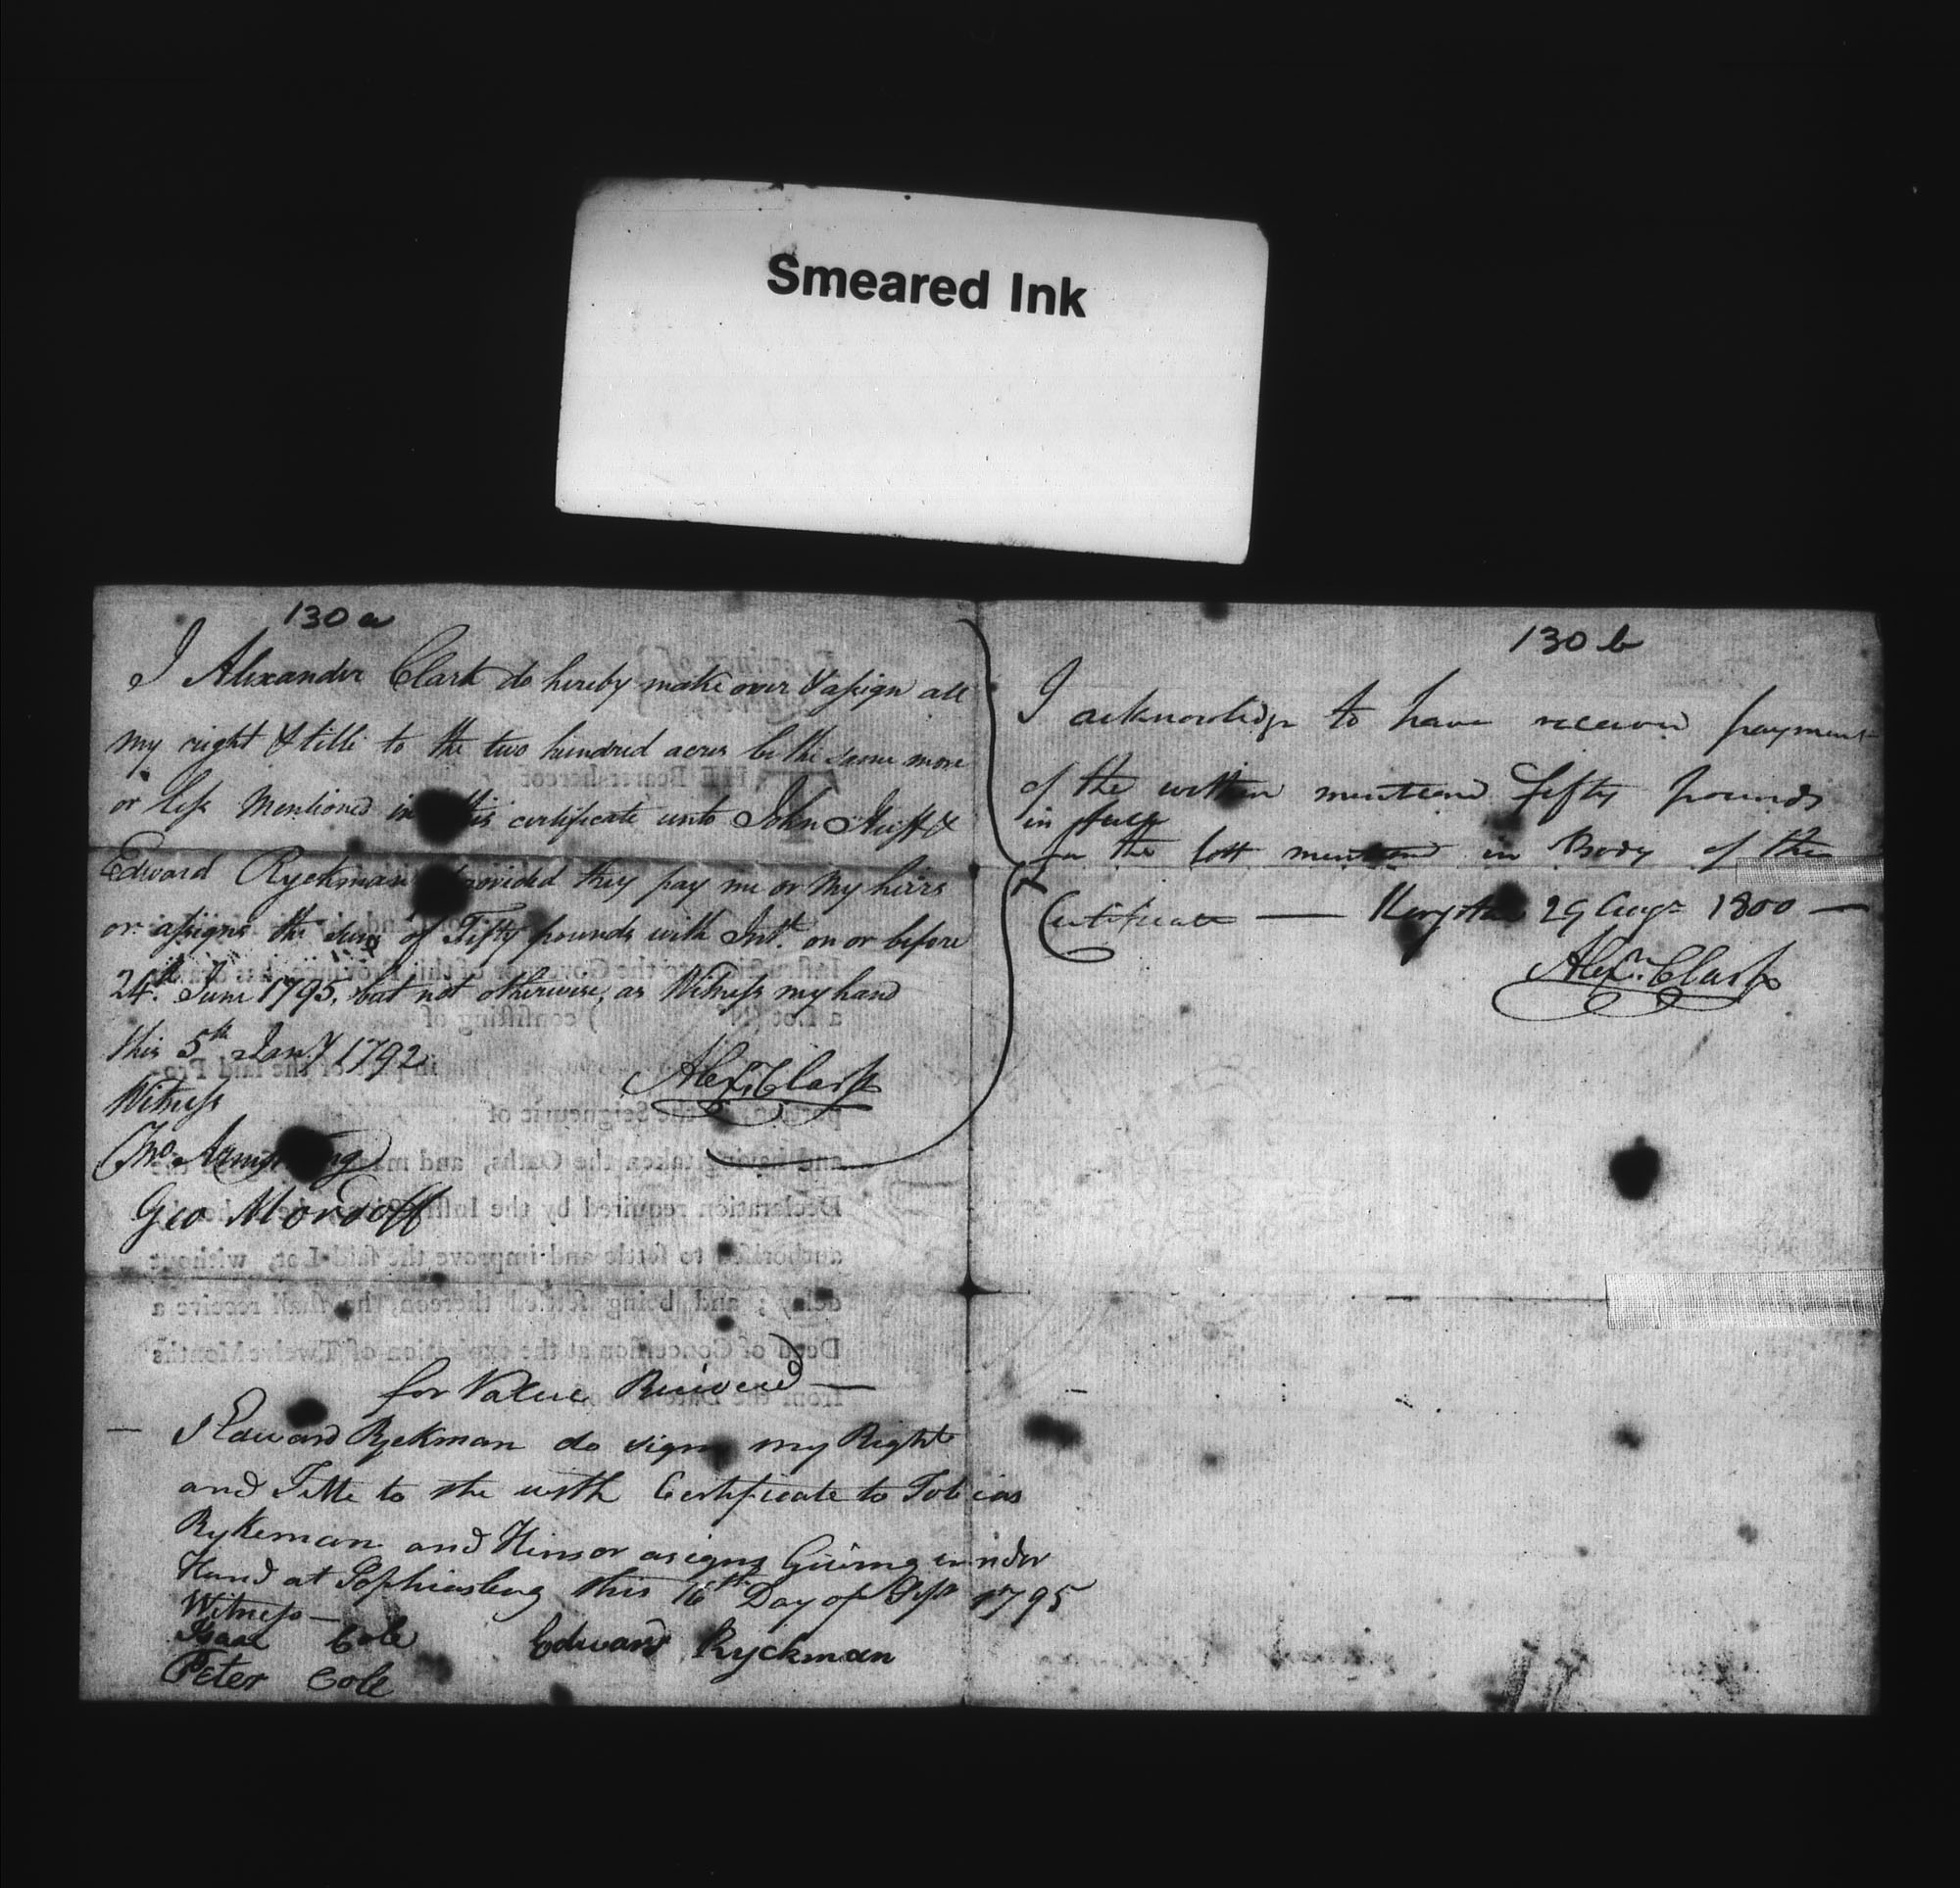 Smeared Ink
130 a
I Alexander Clark do hereby make over & assign all
my right & title to the two hundred acres be the same more
or less Mentioned in this certificate unto John Huff &
Edward Ryckman provided they pay me or my heirs
or assigns the sum of Fifty pounds with Int.t on or before
24th June 1795, but not otherwise, as Witness my hand
this 5th Jan.y 1792
Alex.r Clark
Witness
Tho.s Armstrong
Geo Mordoff
for Value Recieved —
— I Edward Ryckman do sign my Right
and Title to the with Certificate to Tobias
Rykeman and Hinsor asigns Giving under
Hand at Sophiasburg this 16th Day of Sept 1795
Witness —
Isaac Cole
Edward Ryckman
Peter Cole
130 b
I acknowledge to have received payment
of the within mentiond fifty pounds
in full
for the lott mentiond in Body of the
Certificate — Kingston 29 Augt 1800 —
Alex.r Clark
Province of
Quebec,
THE Bearer hereof
Instructions to the Governor of this Province, has drawn
a Lot (No ) consisting of
in part of the said Pro-
portion, in the Seigneurie of
and having taken the Oaths, and made
Declaration required by the Instructions
authorised to settle and improve the said Lot, without
delay; and being settled thereon, he shall receive a
Deed of Concession at the expiration of Twelve Months
from the Date